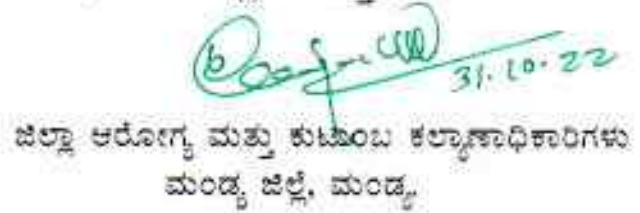 31.10.22
ಜಿಲ್ಲಾ ಆರೋಗ್ಯ ಮತ್ತು ಕುಟುಂಬ ಕಲ್ಯಾಣಾಧಿಕಾರಿಗಳು
ಮಂಡ್ಯ ಜಿಲ್ಲೆ, ಮಂಡ್ಯ.